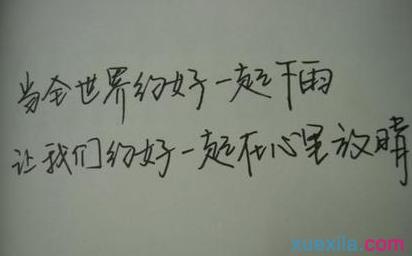 当全世界约好一起下雨
让我们约好一起在心里放晴
xuexila.com